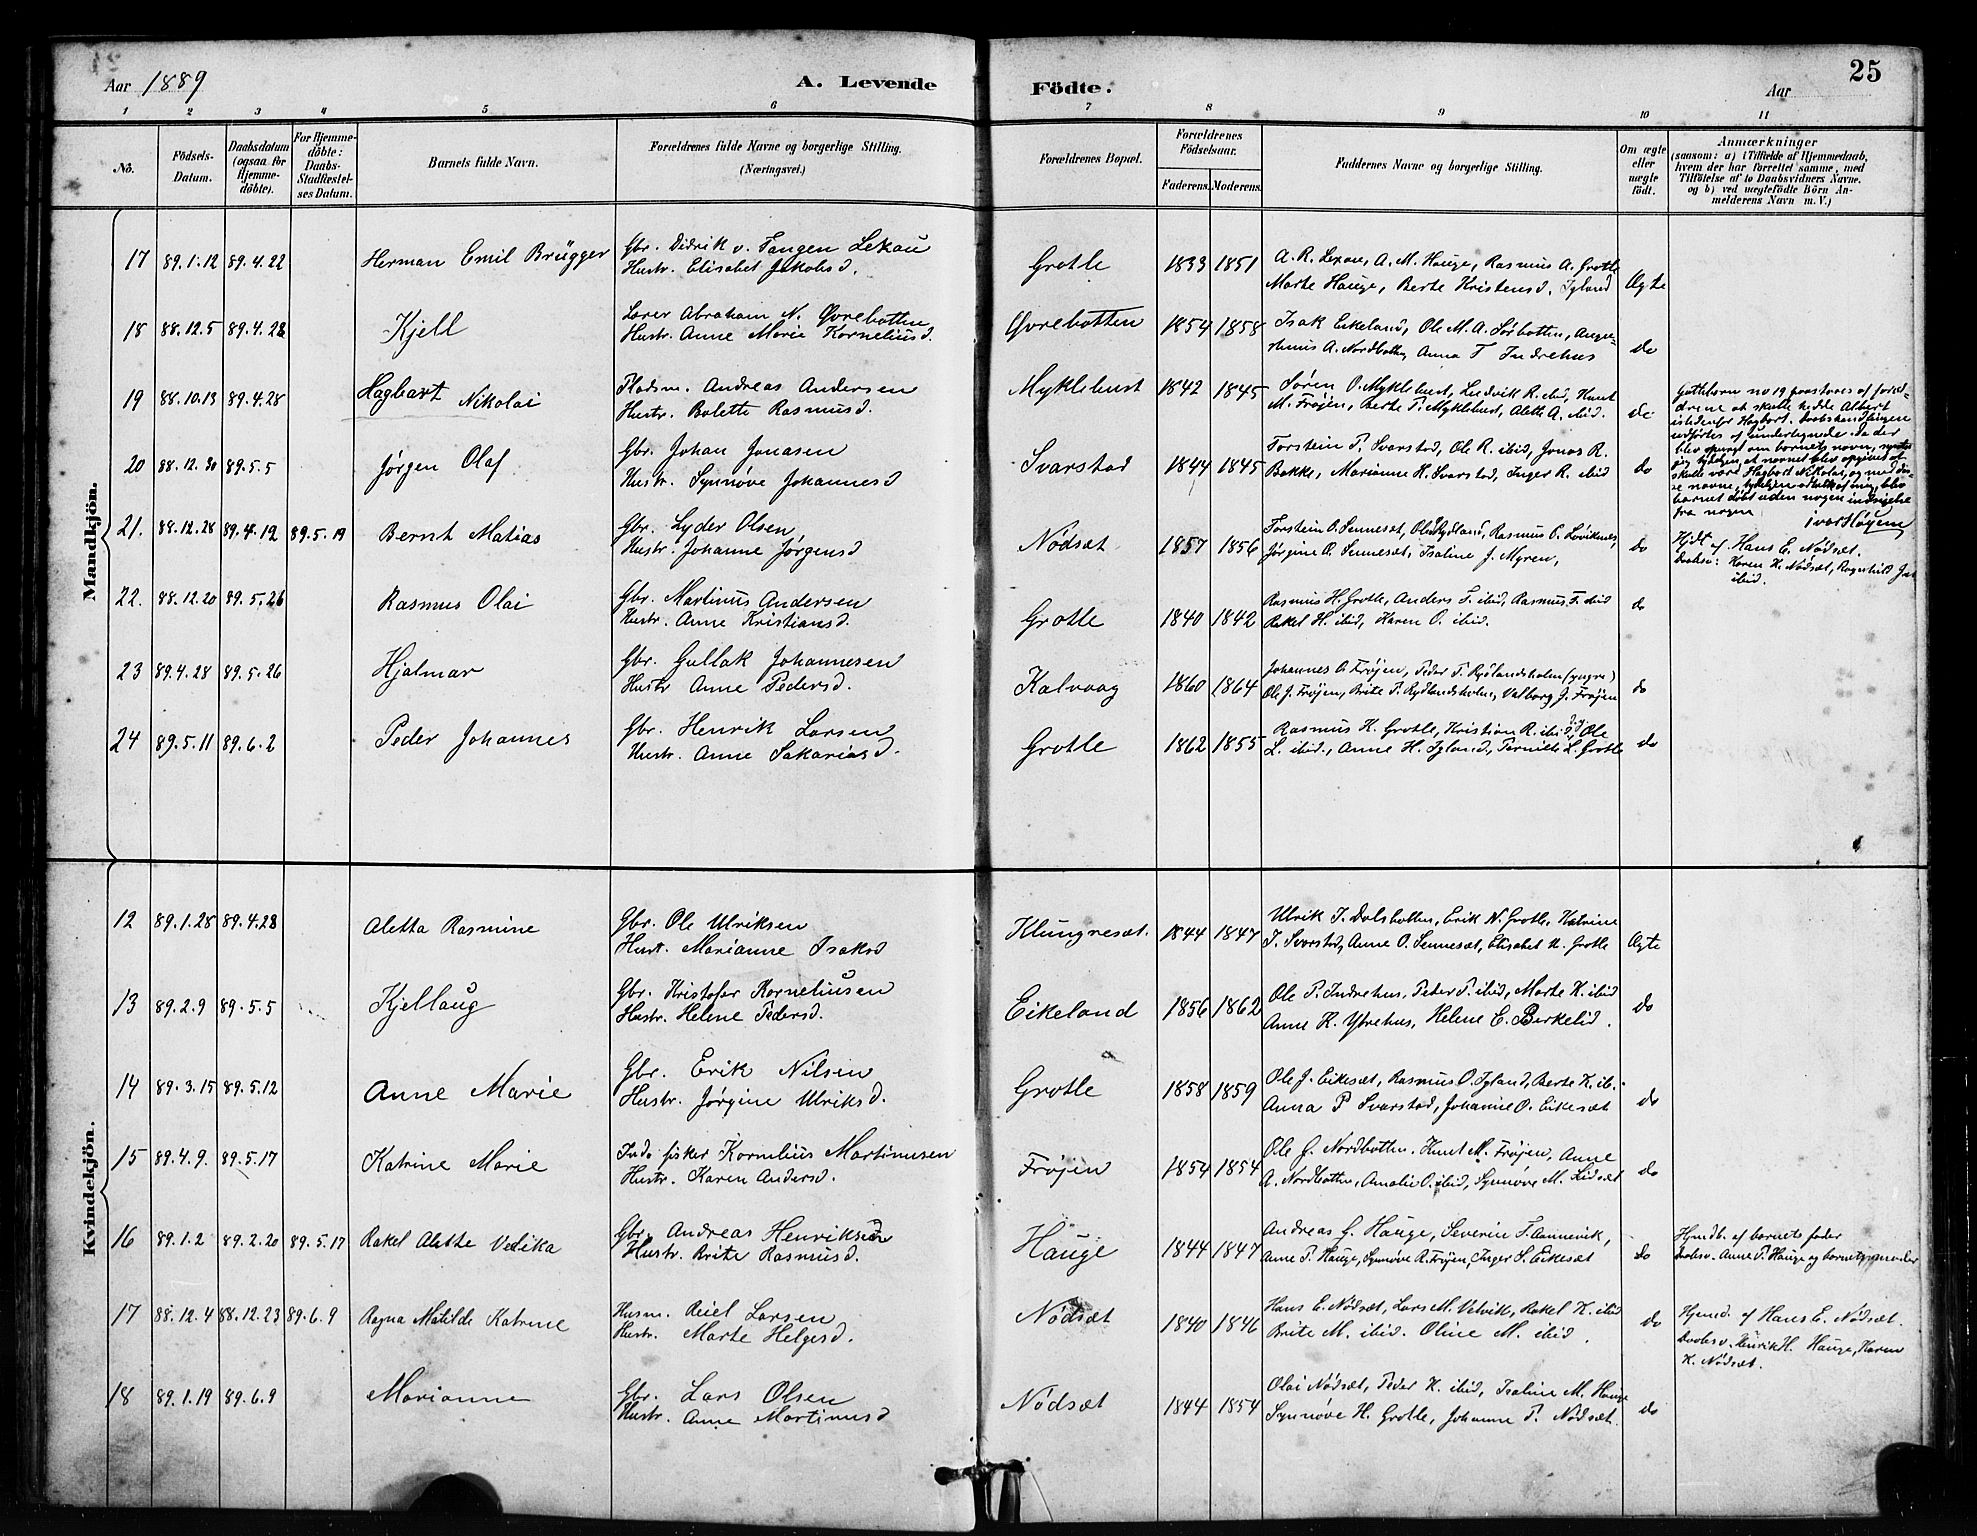 Aar 1889
A. Levende Födte.
Aar
25
1 2 3 4 5 6 7 8 9 10 11
No.
Födsels-Datum.
Daabsdatum (ogsaa for Hjemmedöbte).
For Hjemmedöbte: Daabs-Stadfæstelses Datum.
Barnets fulde Navn.
Forældrenes fulde Navne og borgerlige Stilling. (Næringsvei.)
Forældrenes Bopæl.
Forældrenes Födselsaar.
Faderens. Moderens.
Faddernes Navne og borgerlige Stilling.
Om ægte eller uægte födt.
Anmærkninger
(saasom: a) i Tilfælde af Hjemmedaab, hvem der har forrettet samme, med Tilföielse af to Daabsvidners Navne. og b) ved uægtefödte Börn Anmelderens Navn m. V.)
Mandkjön.
17 89.1.12 89.4.22 Herman Emil Brügger Gbr. Didrik v. Tangen Lexau Grotle 1833 1851 A. R. Lexau, A. M. Hauge, Rasmus A. Grotle Ægte
Hustr. Elisabet Jakobsd. Marte Hauge, Berte Kristensd. Igland
18 88.12.5 89.4.28 Kjell Lærer Abraham N. Øvrebotten Øvrebotten 1854 1858 Isak Eikeland, Ole M. A. Sørbotten, do
Hustr. Anne Marie Korneliusd. A. Nordbotten, Anna T Indrehus
19 88.10.13 89.4.28 Hagbart Nikolai Pladsm. Andreas Andersen Myklebust 1842 1845 Søren O. Myklebust, Ludvik R. ibid, Knut do
Hustr. Balette Rasmusd. M. Frøjen, Berte P. Myklebust, Alette A. ibid.
Guttebarn no 19 paastaaes af forældrene at skulle hedde Albert
istedenfor Hagbart. Daabshandlingen
udførtes af undertegnede. Da der
blev spurgt om barnets navn,
jeg tydeligen at navnet blev opgivet at
skulle være Hagbart Nikolai, og med
navne, blev
barnet døbt uden nogen indsigelse
fra nogen Ivar Høyem
20 88.12.30 89.5.5 Jørgen Olaf Gbr. Johan Jonasen Svarstad 1844 1845 Torstein P. Svarstad, Ole R. ibid, Jonas R. do
Hustr. Synnøve Johannesd Bakke, Marianne H. Svarstad, Inger R. ibid
21. 88.12.28 89.4.19 89.5.19 Bernt Matias Gbr. Lyder Olsen Nødsæt 1857 1856 Torstein O. Sennesæt, Ole Rydland, Rasmus O. Løviknes, do Hjdt af Hans E. Nødsæt.
Hustr. Johanne Jørgensd Jørgine O. Sennesæt, Isaline J. Myren, Daabsv: Karen K. Nødsæt, Ragnhild
ibid.
22. 88.12.20 89.5.26 Rasmus Olai Gbr. Martinus Andersen Grotle 1840 1842 Rasmus H. Grotle, Anders T. ibid, Rasmus F. ibid do
Hustr. Anne Kristiansd. Rakel H. ibid, Karen O. ibid.
23 89.4.28 89.5.26 Hjalmar Gbr. Gullak Johannesen Kalvaag 1860 1864 Johannes O. Frøjen, Peder P. Rydlandsholm (yngre) do
Hustr Anne Pedersd. Ole J. Frøjen, Brite P. Rydlandsholm, Valborg J. Frøjen
24 89.5.11 89.6.2 Peder Johannes Gbr. Henrik Larsen Grotle 1862 1855 Rasmus K. Grotle, Kristian R. ibid, Ole do
Hustr. Anne Sakariasd. L. ibid., Anne H. Igland, Pernille L. Grotle
Kvindekjön.
12 89.1.28 89.4.28 Aletta Rasmine Gbr. Ole Ulriksen Klungresæt. 1844 1847 Ulrik I. Dalsbotten, Erik N. Grotle, Katrine Ægte
Hustr. Marianne Isaksd I. Svarstad, Anne O. Sennesæt, Elisabet K. Grotle
13 89.2.9 89.5.5 Kjellaug Gbr. Kristofer Korneliusen Eikeland 1856 1862 Ole P. Indrehus, Peder P. ibid, Marte K. ibid do
Hustr. Helene Pedersd. Anne K. Ytrehus, Helene E. Birkelid.
14 89.3.15 89.5.12 Anne Marie Gbr. Erik Nilsen Grotle 1858 1859 Ole J. Eikesæt, Rasmus O. Igland, Berte K. ib. do
Hustr. Jørgine Ulriksd. Anna P Svarstad, Johanne O. Eikesæt
15 89.4.9. 89.5.17 Katrine Marie Inds. fisker Kornelius Martinusen Frøjen 1854 1854 Ole J. Nordbotten. Knut M. Frøjen, Anne do
Hustr. Karen Andersd. A. Nordbotten, Amalie O. ibid, Synnøve M. Lidsæt
16 89.1.2 89.2.20 89.5.17 Rakel Alette Vedika Gbr. Andreas Henriksen Hauge 1844 1847 Andreas J. Hauge, Severin T. Aannevik, do Hjmdb. af barnets fader
Hustr. Brite Rasmusd. Anne P. Hauge, Synnøve R. Frøjen, Inger S. Eikesæt Daabsv. Anne P. Hauge og barnets moder
17 88.12.4 88.12.23 89.6.9 Ragna Matilde Katrine Husm. Reiel Larsen Nødsæt 1840 1846 Hans E. Nødsæt, Lars M. Velvik, Rakel K. ibid do Hjemd. af Hans E. Nødsæt.
Hustr. Marte Helgesd. Brite M. ibid. Oline M. ibid. Daabsv. Henrik H. Hauge, Karen
K. Nødsæt.
18 89.1.19 89.6.9 Marianne Gbr. Lars Olsen Nødsæt 1844 1854 Olai Nødsæt, Peder K. ibid, Isaline M. Hauge do
Hustr. Anne Martinusd Synnøve H. Grotle, Johanne P. Nødsæt.